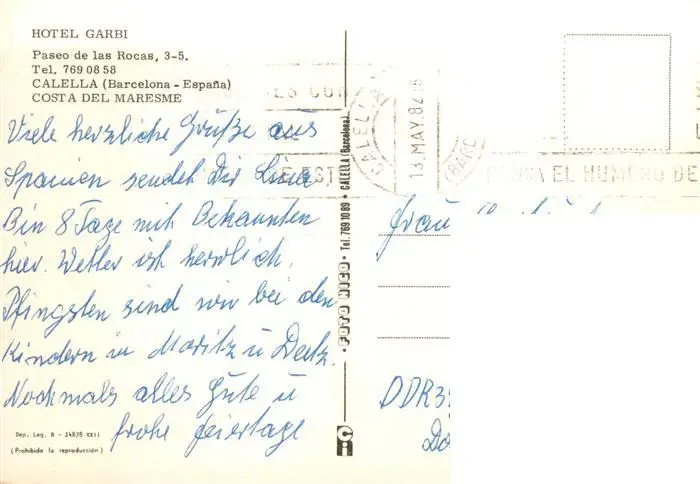 HOTEL GARBI
Paseo de las Rocas, 3-5.
Tel. 769 08 58
CALELLA (Barcelona - España)
COSTA DEL MARESME
Viele herzliche Grüße aus
Spanien sendet Dir
Bin 8 Tage mit Bekannten
hier. Wetter ist herrlich.
Pfingsten sind wir bei den
Kindern in Moritz u
Nochmals alles Gute u
frohe Feiertage
Dep. Leg. B - 24878 XXII
(Prohibida la reproducción)
FOTO • Tel. 769 10 89 • CALELLA (Barcelona)
Ci
CALELLA
13. MAY. 82
(BARC
EL NUMERO DE
Frau
DDR